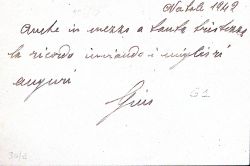 Natale 1942
Anche in mezzo a tanta tristezza
la ricordo inviando i migliori
auguri
Gius